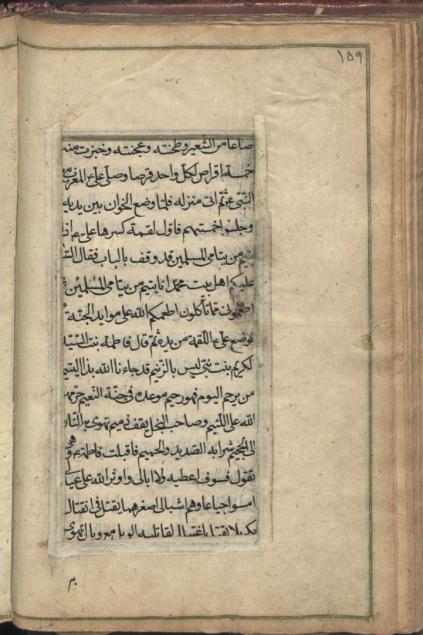 ١٥٩
صاعا من الشعير وطحنته وعجنته وخبزت منه
خمسة اقراص لكل واحد قرصا وصلى على ع المغرب مع
النبى ع ثم اتى منزله فلما وضع الخوان بين يديه
وجلسوا خمستهم فاول لقمة كسرها على ع اذا
يتيم من يتامى المسلمين قد وقف بالباب فقال الس
عليكم اهل بيت محمد انا يتيم من يتامى المسلمين
اطعمونى مما تأكلون اطعمكم الله على موايد الجنة
فوضع على ع اللقمة من يده ثم قال فاطمه بنت السيد
لكريم بنت نبى ليس بالزنيم قد جاءنا الله بذا اليتيم
من يرحم اليوم فهو رحيم موعده فى جنة النعيم حرمها
الله على اللئيم وصاحب البخل يقف ذميم تهوى به النار
الى الجحيم شرابه الصديد والحميم فاقبلت فاطمة ع وهى
تقول فسوف اعطيه ولا ابالى واوثر الله على عيا
امسوا جياعا وهم اشبالى اصغرهما يقتل فى القتال